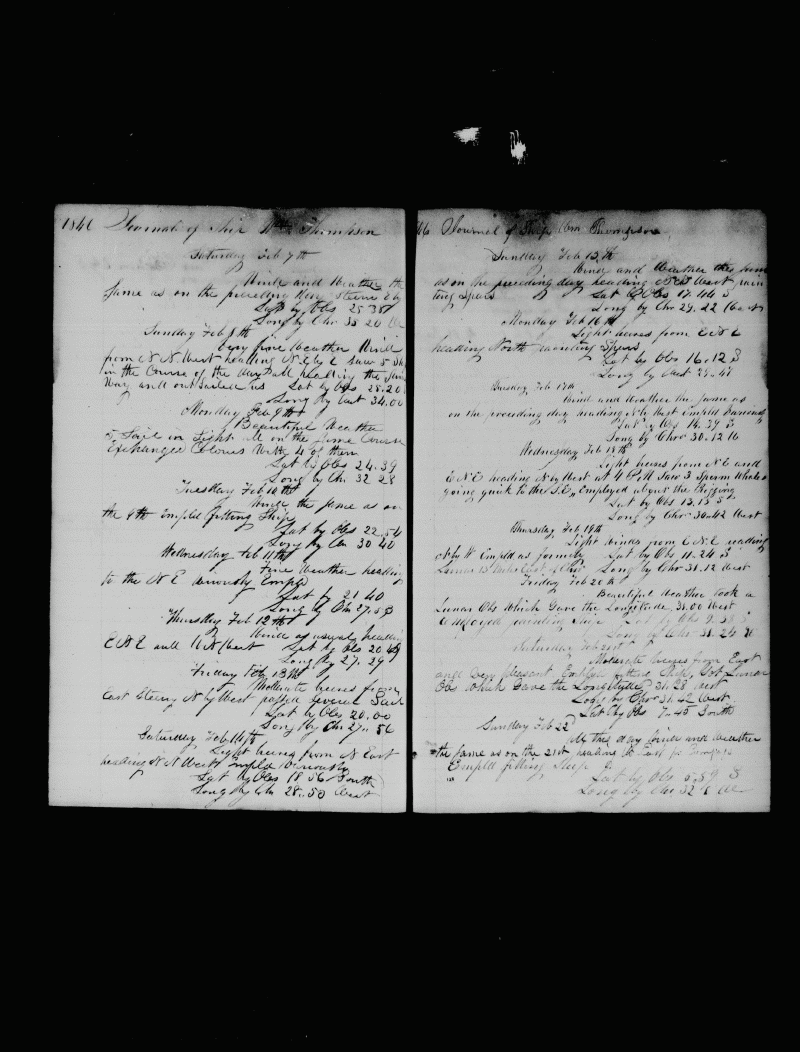 1846 Journal of Ship Wm Thompson
Saturday Feb 7th
Wind and Weather the
Same as on the preceding day Steere E by
Lat by Obs 25 38
Long by Chr 35 20 We
Sunday Feb 8th
Very fine Weather Wind
from N N West heading N E by E Saw 5 Sh
in the Course of the day all heading the Sam
Way and outsailed us Lat by Obs 25.20
Long by 34.00
Monday Feb 9th
Beautiful Weather
5 Sail in Sight all on the Same Course
Exchanged Colours With 4 of them
Lat by Obs 24.39
Long by Chr 32 28
Tuesday Feb 10th
the same as on
the 9th Empld fitting Ship
Lat by Obs 22.54
Long by Chr 30 40
Wednesday Feb 11th
Fine Weather heading
to the N E variously Empld
Lat by 21 40
Long by Chr 27.53
Thursday Feb 12th
Wind as usual heading
E N E and N N West Lat by Obs 20.49
Long by 27. 29
Friday Feb 13th
Moderate breeses from
East Steere N by West passed Several Sail
Lat by Obs 20.00
Long by Chr 27.. 56
Saturday Feb 14th
Light breeses from N East
heading N N West empld Variously
Lat by Obs 18 56 South
Long by Chr 28..50 West
46 Journal of Ship Wm Thompson
Sunday Feb 15th
Wind and Weather this
as on the preceding day heading West pain
ting Spars Lat by Obs 17.44 S
Long by Chr 29.. 22 West
Monday Feb 16th
Light breeses from E N E
heading North painting Spars
Lat by Obs 16..12 S
Long by West 29..47
Tuesday Feb 17th
Wind and Weather the same as
on the preceding day heading N by West Empld Variously
Lat by Obs 14.39 S
Long by Chr 30..12 W
Wednesday Feb 18th
Light breeses from N E and
E N E heading N by West at 4 P M Saw 3 Sperm Whales
going quick to the S.E. Employed about the Rigging
Lat by Obs 13.13 S
Long by Chr 30..42 West
Thursday Feb 19th
Light winds from E N E heading
N by W Empld as formerly Lat by Obs 11.24 S
Lunar 15 Miles East of Chr Long by Chr 31.12 West
Friday Feb 20th
Beautiful Weather took a
Lunar Obs Which Gave the Longitude 31.00 West
Employed painting Ship Lat by Obs 9.33 S
Long by Chr 31.24 W
Saturday Feb 21st
Moderate breeses from East
and very pleasant Employed fitting Ship, Got Lunar
Obs which Gave the Longitude 31.28 West
Long by Chr 31.42 West
Lat by Obs 7..45 South
Sunday Feb 22
This day Wind and Weather
the same as on the 21st heading
Empld fitting Ship
Lat by Obs 5.59 S
Long by Chr 32